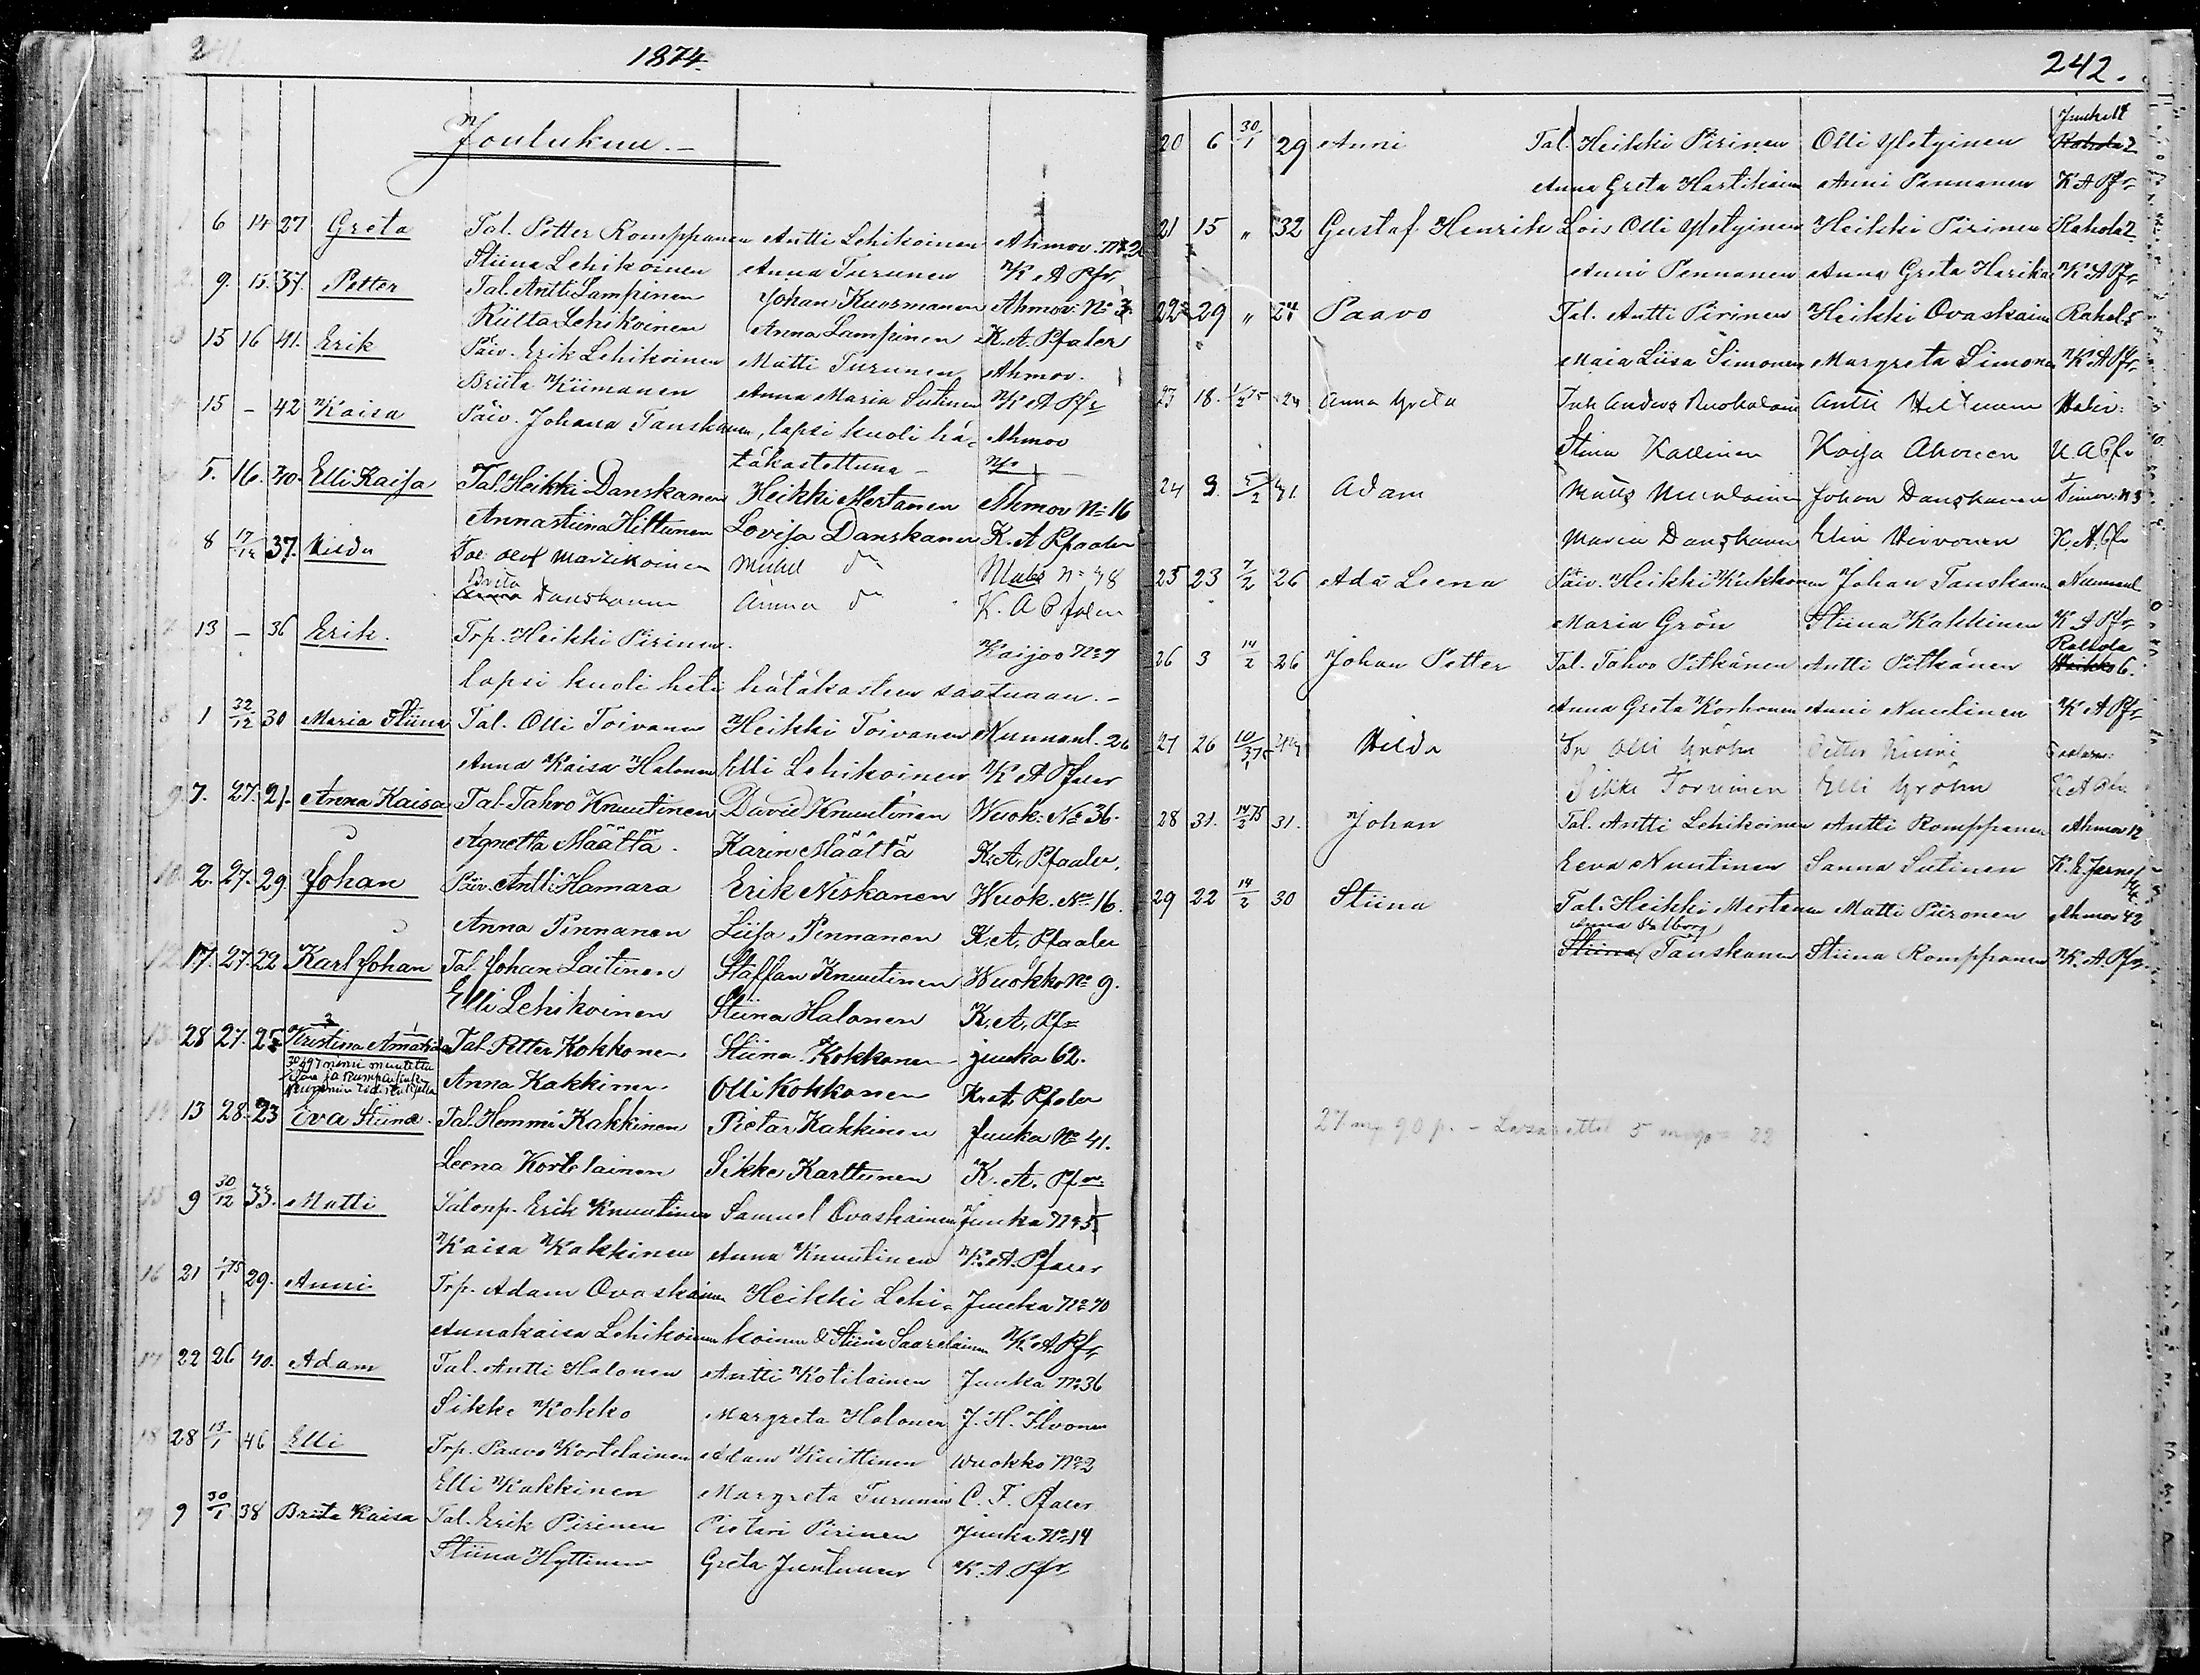 241. 1874.
Joulukuu.
6 14 27 Greta Tal. Petter Romppanen Antti Lehikoinen Ahmov. No 2
Stiina Lehikoinen Anna Turunen K A Pfr
9. 15. 37. Petter Tal. Antti Lampinen Johan Kuosmanen Ahmov. No 3.
Riitta Lehikoinen Anna Lampinen K. A. Pfaler
15 16 41. Erik Päiv. Erik Lehikoinen Matti Turunen Ahmov.
Briita Kiimanen Anna Maria Sutinen K A Pfr
15 - 42 Kaisa Päiv. Johana Tanskanen, lapsi kuoli hä- Ahmov
täkastettuna -
5. 16. 40. Elli Kaisa Tal. Heikki Danskanen Heikki Mertanen Ahmov No 16
Anna Stiina Hiltunen Lovisa Danskanen K. A Pfaler
8 17/12 37. Hilda Tal Olof Martikainen Michel do No 48
Brita Danskanen Anna do K. A Pfaler
13 - 36 Erik. Trp. Heikki Pirinen. Kaijoo No 7
lapsi kuoli heti hätäkasteen saatuaan. -
8 1 22/12 30 Maria Stiina Tal. Olli Toivanen Heikki Toivanen Nunnanl. 26
Anna Kaisa Halonen Elli Lehikoinen K A Pfaler
9 7. 27. 21. Anna Kaisa Tal. Tahvo Knuutinen David Knuutinen Wuok: No 36.
Agnetta Määttä. Karin Määttä K. A. Pfaler.
10. 2. 27. 29. Johan Päiv. Antti Hamara Erik Niskanen Wuok. No 16.
Anna Pennanen Liisa Pennanen K. A. Pfaler
12 17. 27. 22 Karl Johan Tal. Johan Laitinen Staffan Knuutinen Wuokko No 9.
Elli Lehikoinen Stiina Halonen K. A. Pfr
13 28 27. 25 Kristina Tal. Petter Kokkonen Stiina Kokkonen Juuka 62.
nimi muutettu
Anna Kakkinen Olli Kokkonen K. A Pfaler
14 13 28. 23 Eva Stiina. Tal. Hemmi Kakkinen Pietar Kakkinen Juuka No 41.
Leena Kortelainen Sikke Karttunen K. A. Pfr
15 9 30/12 33. Matti Talonp. Erik Knuutinen Samuel Ovaskainen Juuka No 5
Kaisa Kakkinen Anna Knuutinen K. A. Pfaler
16 21 1/1 75 29. Anni Trp. Adam Ovaskainen Heikki Lehi- Juuka No 70
Annakaisa Lehikoinen koinen & Stiina Saarelainen K. A. Pfr
17 22 26 40. Adam Tal. Antti Halonen Antti Kotilainen Juuka No 36
Sikke Kokko Margreta Halonen J. H. Ilvonen
18 28 13/1 46 Elli Trp. Paavo Kortelainen Adam Kuittinen Wuokko No 2
Elli Kakkinen Margreta Turunen C. F. Pfaler
9 30/1 38 Brita Kaisa Tal. Erik Pirinen Pietari Pirinen Juuka No 14
Stiina Hyttinen Greta Juntunen K. A. Pfr
242.
Juuka 14
20 6 30/1 29 Anni Tal. Heikki Pirinen Olli Yletyinen Rahola 2
Anna Greta Hartikainen Anni Pennanen K A Pfr
21 15 " 32 Gustaf Henrik Lois Olli Yletyinen Heikki Pirinen Rahola 2
Anni Pennanen Anna Greta Harikai K A Pfr
22 29 " 24 Paavo Tal. Antti Pirinen Heikki Ovaskainen Rahol 5
Maia Liisa Simonen Margreta Simonen K A Pfr
23 18. 1/2 75 24 Anna Greta Anders Ruokolainen Antti Hiltunen
Stina Kallinen Kaisa Ahonen K A Pfr
24 9. 5/2 41. Adam Matts Johan Danskanen Timov. N 3
Maria Danskanen Elin Hirvonen K. A. Pfr
25 23 7/2 26 Ada Leena Päiv. Heikki Kukkonen Johan Tanskanen Nunnanl
Maria Grön Stiina Kakkinen K A Pfr
Palsola
26 3 14/2 26 Johan Petter Tal. Tahvo Pitkänen Antti Pitkänen 6.
Anna Greta Korhonen Anni Nuutinen K A Pfr
27 26 10/3 Hilda Olli Gröhn Petter
Sikke Toruinen Elli Gröhn K A Pfr
28 31. 14/2 75 31. Johan Tal. Antti Lehikoinen Antti Romppanen Ahmov 12
Eeva Nuutinen Sanna Sutinen K. E. Jarnef
29 22 14/2 30 Stiina Tal. Heikki Mertanen Matti Piironen Ahmov 42
Anna Valborg
Stiina Tanskanen Stiina Romppanen K. A. Pfr
27 90 p. - Lazarettet 5 22